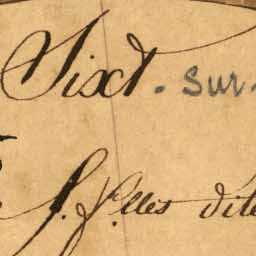 Sixt. sur.
S. f.lles dite